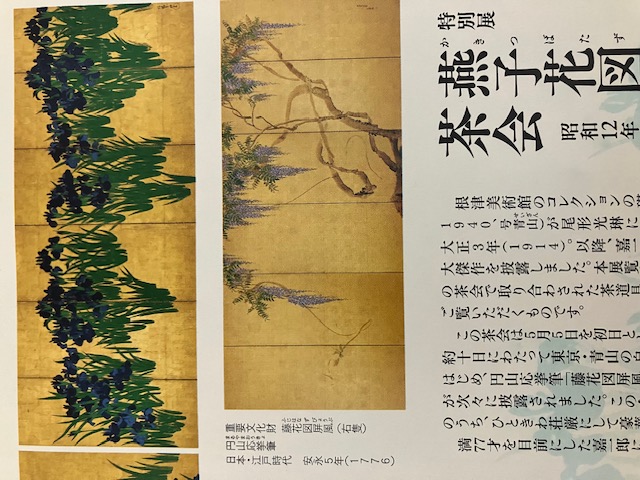 特別展
かきつばたず
燕子花図
茶会 昭和12年
根津美術館のコレクションの
せいざん
1940、号青山)が尾形光琳に
大正3年(1914)。以降、嘉一
大傑作を披露しました。本展覧
の茶会で取り合わされた茶道具
ご覧いただくものです。
この茶会は5月5日を初日と
約十日にわたって東京・青山の
はじめ、円山応挙筆「藤花図屏風
が次々に披露されました。この
のうち、ひときわ荘厳にして豪
満77才を目前にした嘉一郎に
ふじはなずびょうぶ
重要文化財 藤花図屏風(右隻)
まるやまおうきょ
円山応挙筆
日本・江戸時代 安永5年(1776)